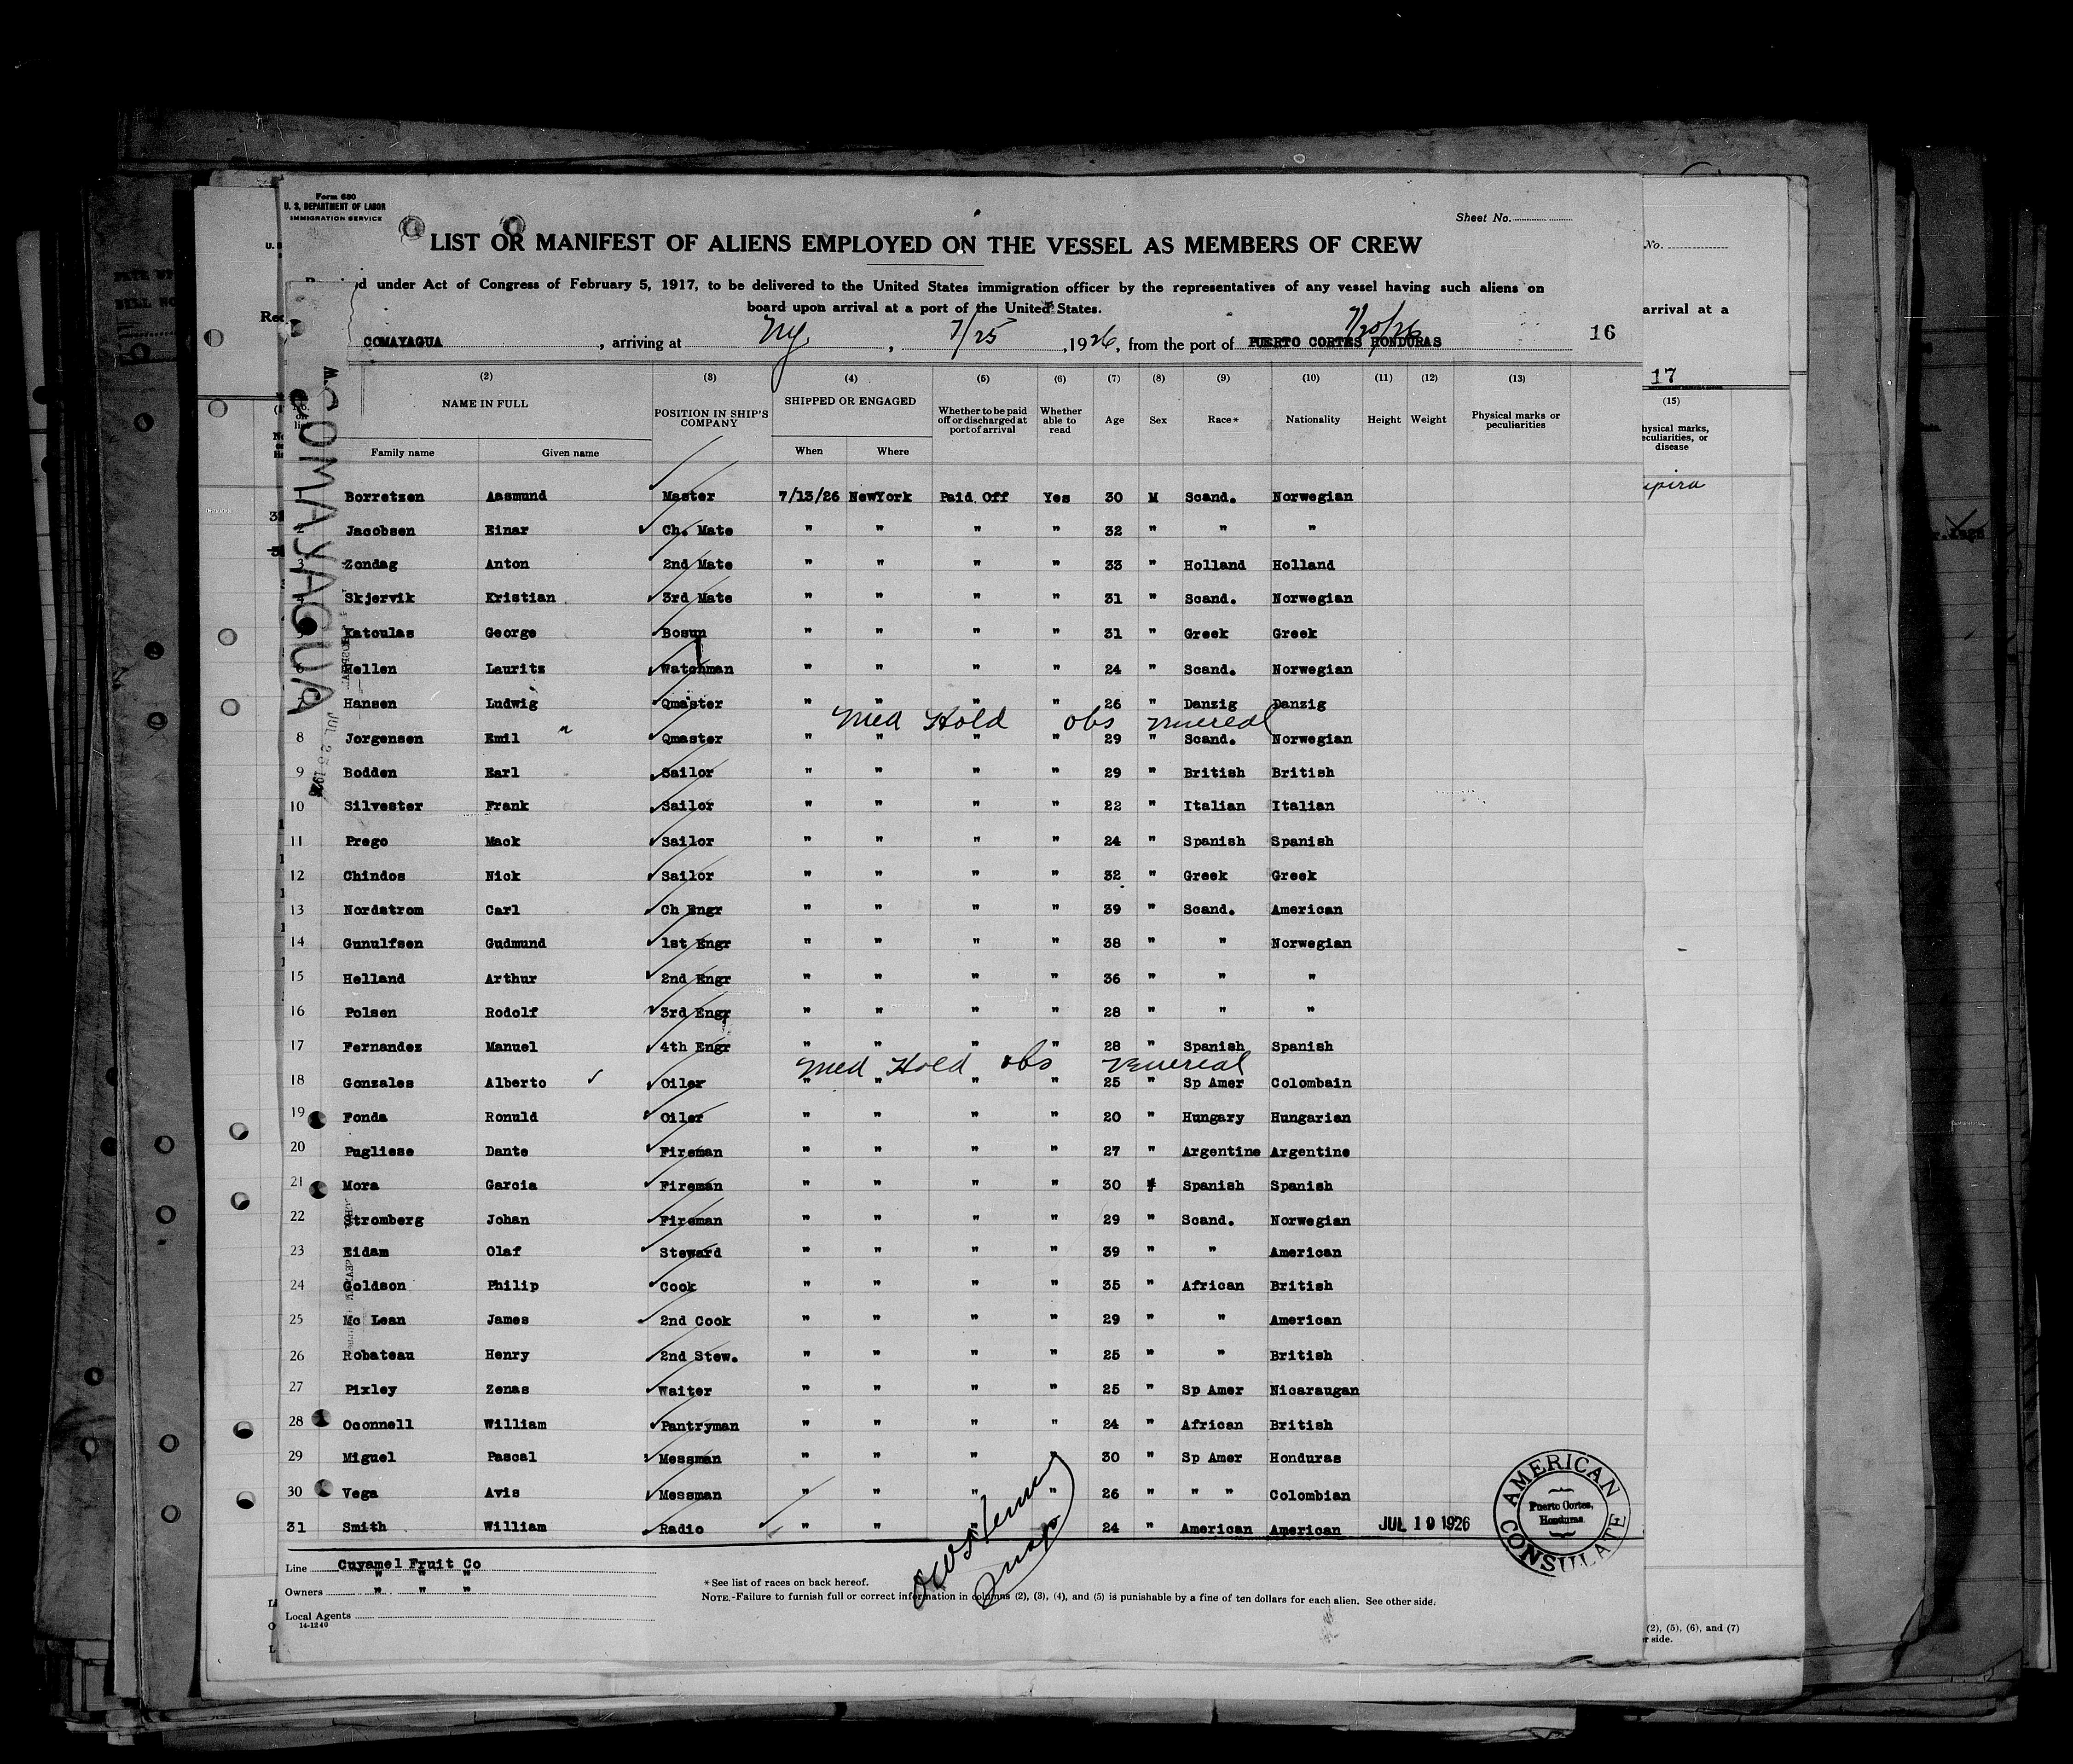 Form 680
U. S. DEPARTMENT OF LABOR
IMMIGRATION SERVICE
Sheet No.
LIST OR MANIFEST OF ALIENS EMPLOYED ON THE VESSEL AS MEMBERS OF CREW
under Act of Congress of February 5, 1917, to be delivered to the United States immigration officer by the representatives of any vessel having such aliens on
board upon arrival at a port of the United States.
COMAYAGUA, arriving at Ny, 7/25, 1926, from the port of PUERTO CORTES HONDURAS 7/20/26 16
COMAYAGUA
(2) (3) (4) (5) (6) (7) (8) (9) (10) (11) (12) (13)
NAME IN FULL POSITION IN SHIP'S COMPANY SHIPPED OR ENGAGED Whether to be paid off or discharged at port of arrival Whether able to read Age Sex Race* Nationality Height Weight Physical marks or peculiarities
Family name Given name When Where
Borretzen Aasmund Master 7/13/26 NewYork Paid Off Yes 30 M Scand. Norwegian
Jacobsen Einar Ch. Mate " " " " 32 " " "
3 Zondag Anton 2nd Mate " " " " 33 " Holland Holland
4 Skjervik Kristian 3rd Mate " " " " 31 " Scand. Norwegian
Katoulas George Bosun " " " " 31 " Greek Greek
Hellen Lauritz Watchman " " " " 24 " Scand. Norwegian
7 Hansen Ludwig Qmaster " " " " 26 " Danzig Danzig
Med Hold obs venereal
8 Jorgensen Emil " Qmaster " " " " 29 " Scand. Norwegian
9 Bodden Earl Sailor " " " " 29 " British British
10 Silvester Frank Sailor " " " " 22 " Italian Italian
11 Prego Mack Sailor " " " " 24 " Spanish Spanish
12 Chindos Nick Sailor " " " " 32 " Greek Greek
13 Nordstrom Carl Ch Engr " " " " 39 " Scand. American
14 Gunulfsen Gudmund 1st Engr " " " " 38 " " Norwegian
15 Helland Arthur 2nd Engr " " " " 36 " " "
16 Polsen Rodolf 3rd Engr " " " " 28 " " "
17 Fernandez Manuel 4th Engr " " " " 28 " Spanish Spanish
Med Hold obs venereal
18 Gonzales Alberto Oiler " " " " 25 " Sp Amer Colombain
19 Fonda Ronuld Oiler " " " " 20 " Hungary Hungarian
20 Pugliese Dante Fireman " " " " 27 " Argentine Argentine
21 Mora Garcia Fireman " " " " 30 Spanish Spanish
22 Stromberg Johan Fireman " " " " 29 " Scand. Norwegian
23 Eidam Olaf Steward " " " " 39 " " American
24 Goldson Philip Cook " " " " 35 " African British
25 Mc Lean James 2nd Cook " " " " 29 " " American
26 Robateau Henry 2nd Stew. " " " " 25 " " British
27 Pixley Zenas Waiter " " " " 25 " Sp Amer Nicaraugan
28 Oconnell William Pantryman " " " " 24 " African British
29 Miguel Pascal Messman " " " " 30 " Sp Amer Honduras
30 Vega Avis Messman " " " " 26 " " " Colombian
31 Smith William Radio " " " 24 " American American JUL 19 1926
AMERICAN CONSULATE
Puerto Cortes,
Honduras
Line Cuyamel Fruit Co
Owners " " "
Local Agents
14-1240
*See list of races on back hereof.
NOTE.-Failure to furnish full or correct information in columns (2), (3), (4), and (5) is punishable by a fine of ten dollars for each alien. See other side.
No.
arrival at a
17
(15)
hysical marks,
eculiarities, or
disease
(2), (5), (6), and (7)
r side.